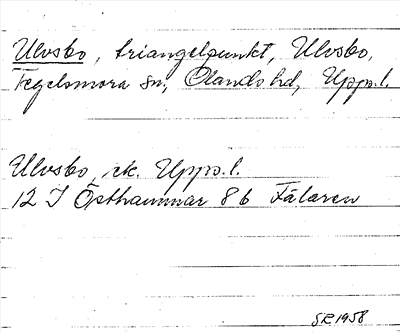 Ulvsbo, triangelpunkt, Ulvsbo,
Tegelsmora sn, Olands hd, Upps.l.
Ulvsbo, ek. Upps.l.
12 I Östhammar 8b Fälaren
SR 1958